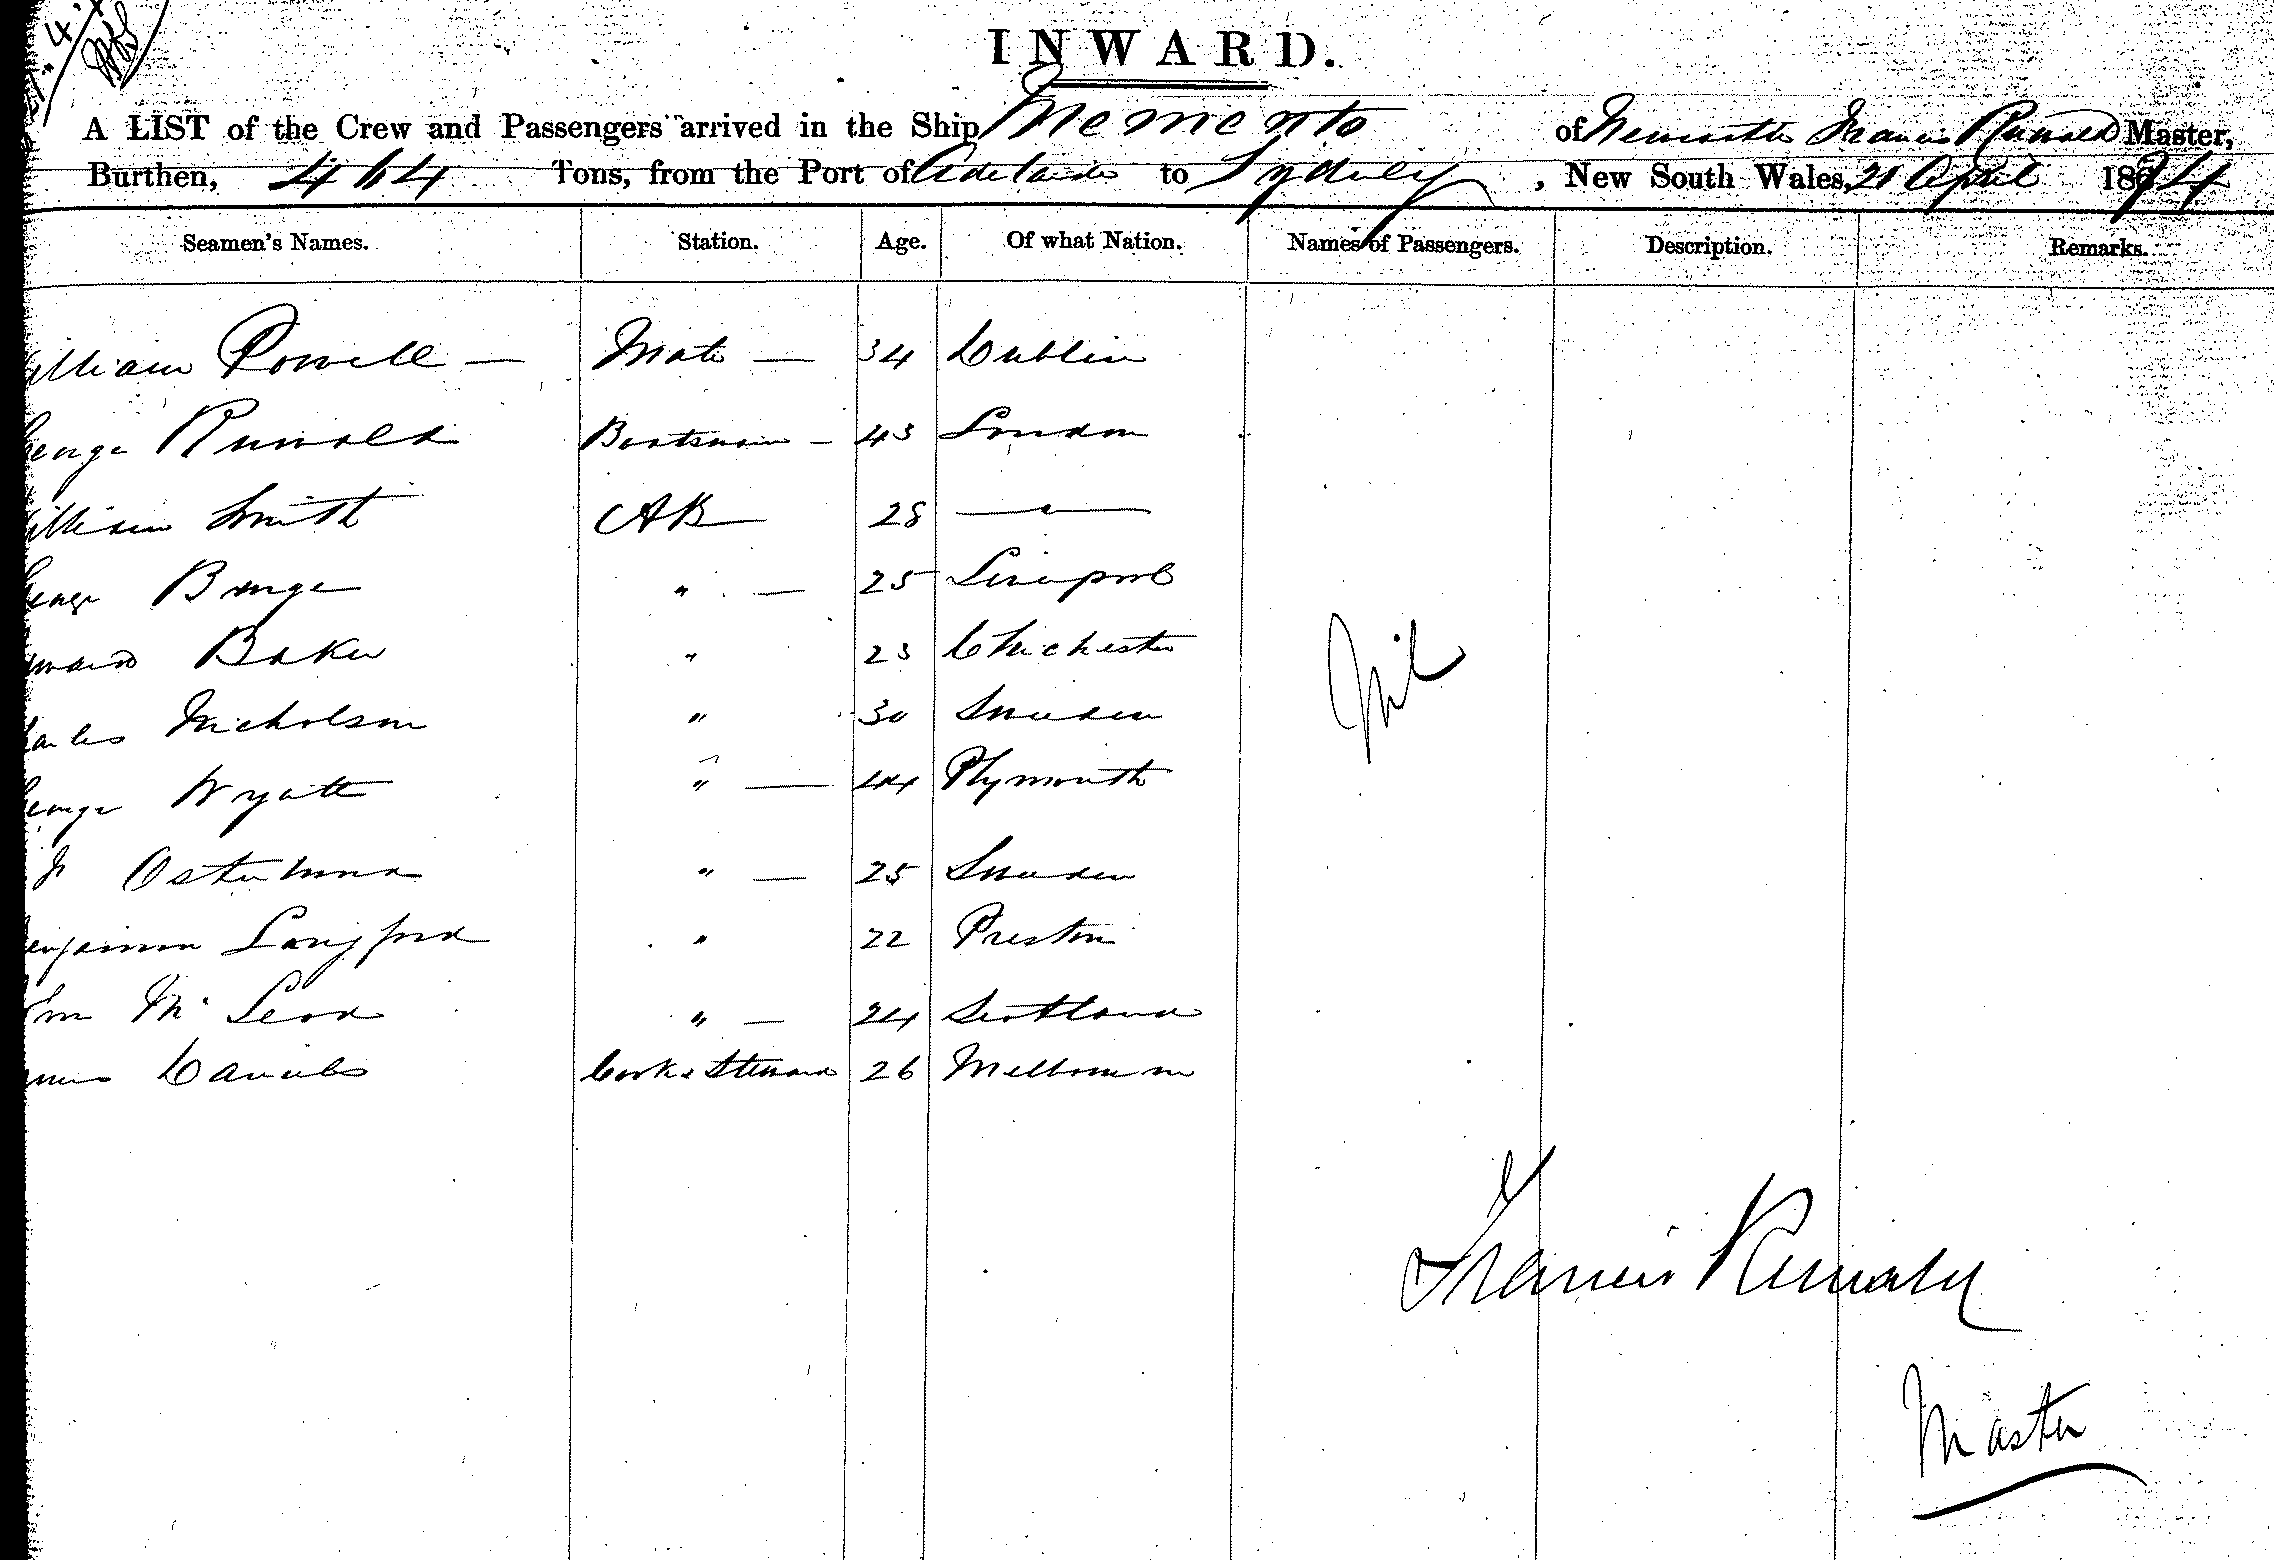 INWARD.
A LIST of the Crew and Passengers arrived in the Ship Memento of Newcastle Francis Runvald Master,
Burthen, 464 Tons, from the Port of Adelaide to Sydney, New South Wales, 21 April 1874
Seamen's Names. Station. Age. Of what Nation. Names of Passengers. Description. Remarks.
William Powell — Mate — 34 Dublin
George Runvald Boatswain — 43 London
William Smith AB 28 — " —
George Bunge " — 25 Liverpool
Edward Baker " 23 Chichester
Charles Nicholson " 30 Sweden
Nil
George Wyatt " — 44 Plymouth
Osterlund " — 25 Sweden
Benjamin Langford " 22 Preston
Wm McLeod " — 24 Scotland
James Daniels Cook & Steward 26 Melbourne
Francis Runvald
Master